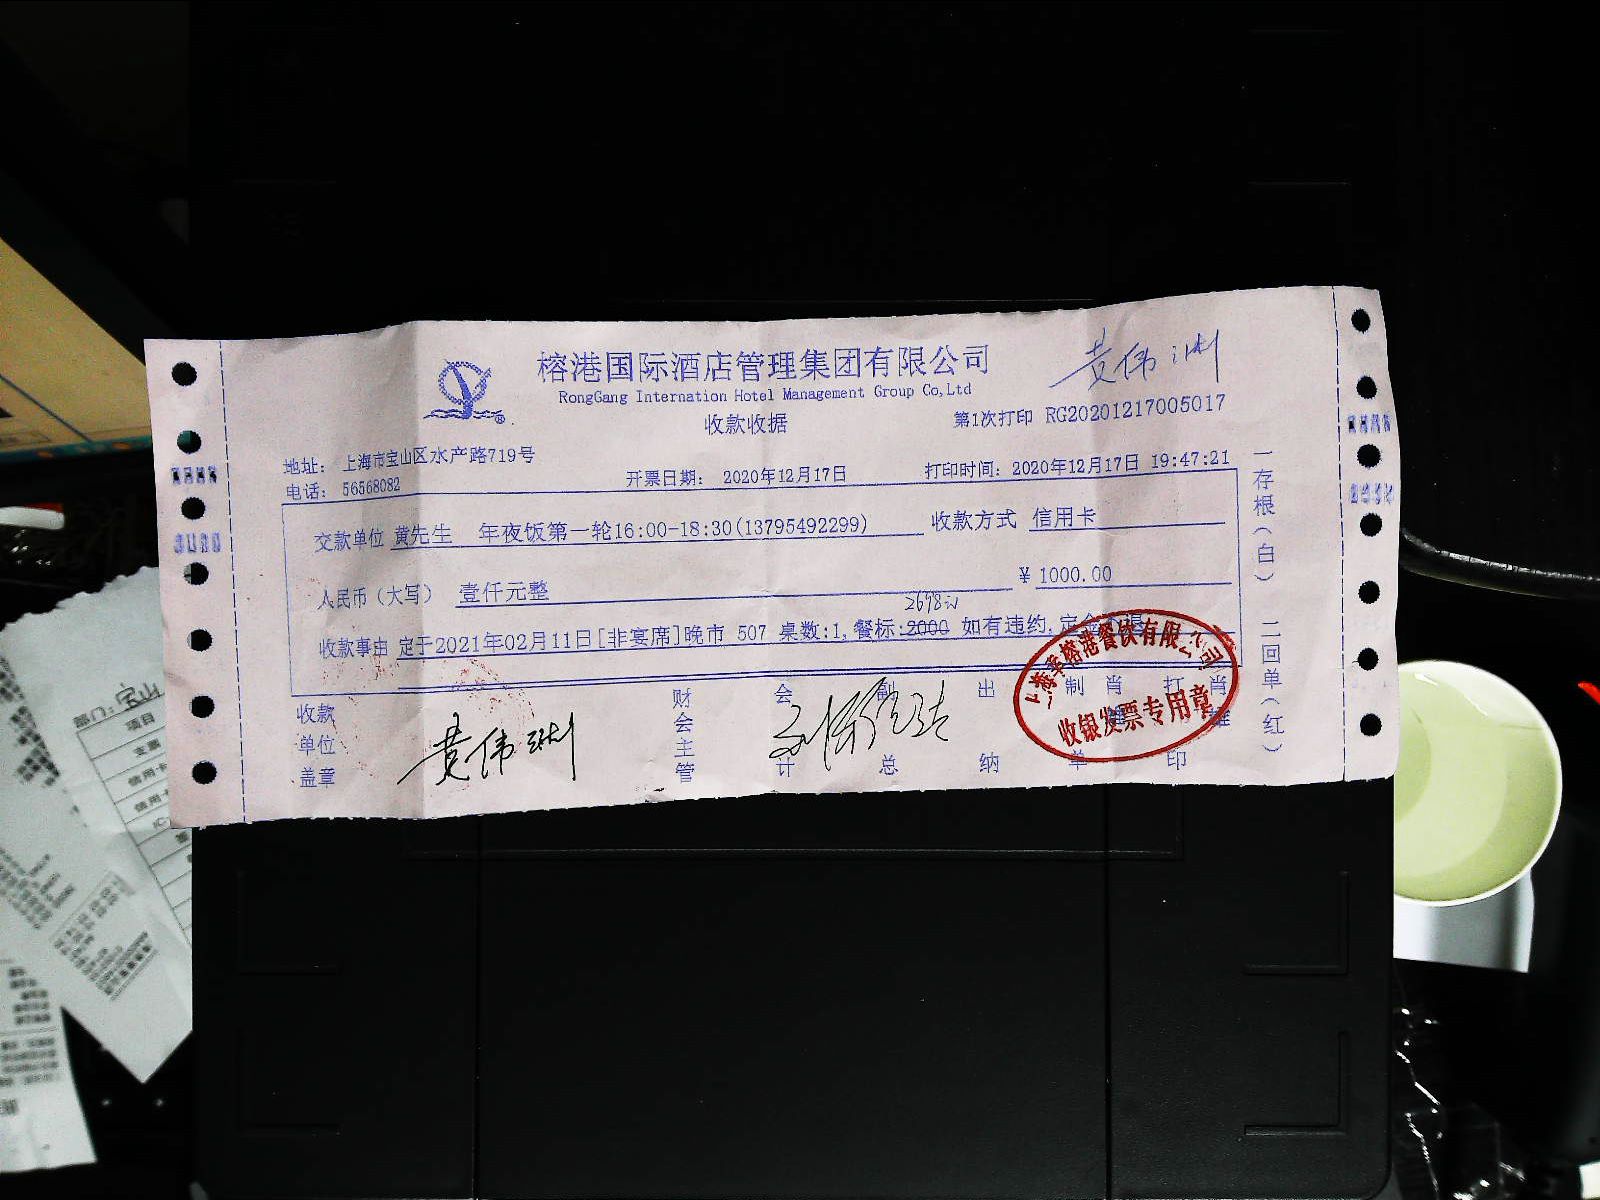 榕港国际酒店管理集团有限公司
黄伟
RongGang Internation Hotel Management Group Co,Ltd
收款收据
第1次打印 RG20201217005017
地址： 上海市宝山区水产路719号
电话： 56568082
开票日期： 2020年12月17日
打印时间： 2020年12月17日 19:47:21
交款单位 黄先生 年夜饭第一轮16:00-18:30(13795492299)
收款方式 信用卡
人民币（大写） 壹仟元整
¥ 1000.00
2698
收款事由 定于2021年02月11日[非宴席]晚市 507 桌数:1,餐标:2000 如有违约,定金 退
一存根（白） 二回单（红）
收款单位盖章
黄伟
财会主管
会计
副总
出纳
制单
肖
打印
肖
榕港餐饮有限公司
收银发票专用章
部门：宝山
项目
支票
信用卡
信用卡